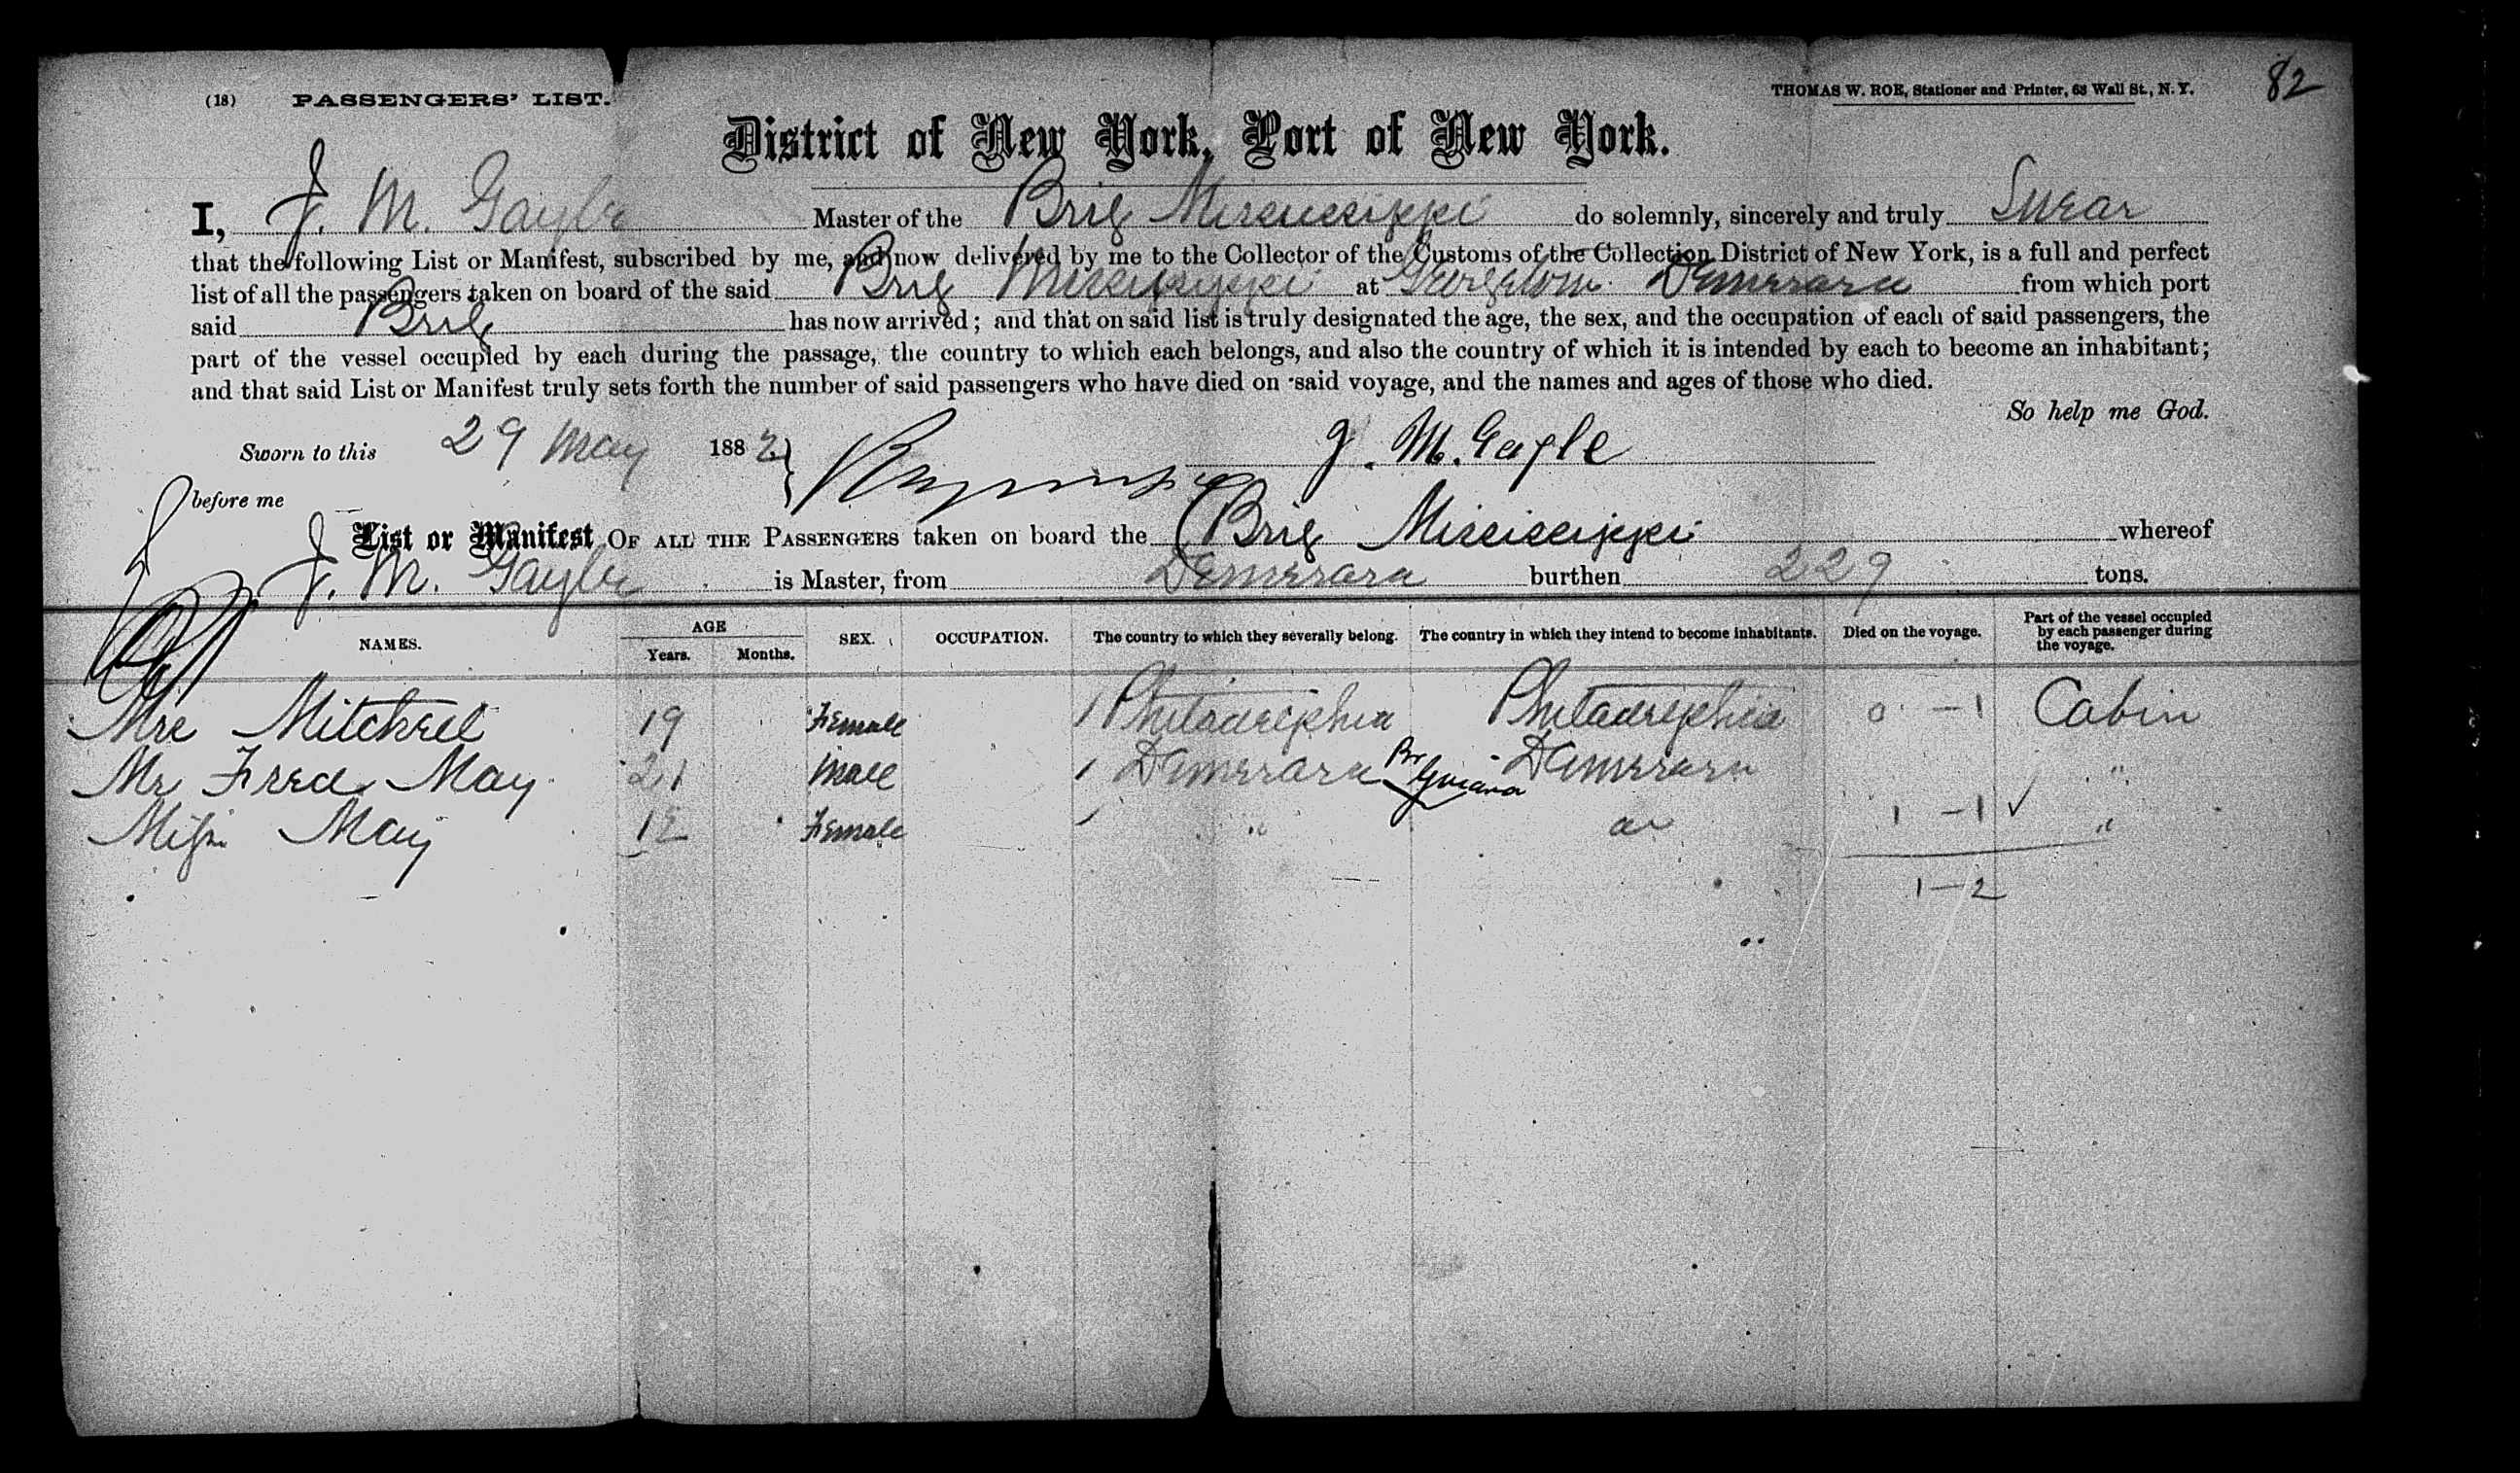 (18) PASSENGERS' LIST.
THOMAS W. ROE, Stationer and Printer, 63 Wall St., N.Y. 82
District of New York, Port of New York.
I, J. M. Gayle Master of the Brig Mississippi do solemnly, sincerely and truly Swear
that the following List or Manifest, subscribed by me, and now delivered by me to the Collector of the Customs of the Collection District of New York, is a full and perfect
list of all the passengers taken on board of the said Brig Mississippi at Georgetown Demerara from which port
said Brig has now arrived; and that on said list is truly designated the age, the sex, and the occupation of each of said passengers, the
part of the vessel occupied by each during the passage, the country to which each belongs, and also the country of which it is intended by each to become an inhabitant;
and that said List or Manifest truly sets forth the number of said passengers who have died on said voyage, and the names and ages of those who died.
So help me God.
Sworn to this 29 May 1882 J. M. Gayle
before me
List or Manifest OF ALL THE PASSENGERS taken on board the Brig Mississippi whereof
J. M. Gayle is Master, from Demerara burthen 229 tons.
NAMES. AGE Years. Months. SEX. OCCUPATION. The country to which they severally belong. The country in which they intend to become inhabitants. Died on the voyage. Part of the vessel occupied by each passenger during the voyage.
Mrs Mitchel 19 Female 1 Philadelphia Philadelphia 0 - 1 Cabin
Mr Fred May 21 Male 1 Demerara Br Guiana Demerara "
Miss May Female 1 " 1 - 1 ✓ "
1 - 2